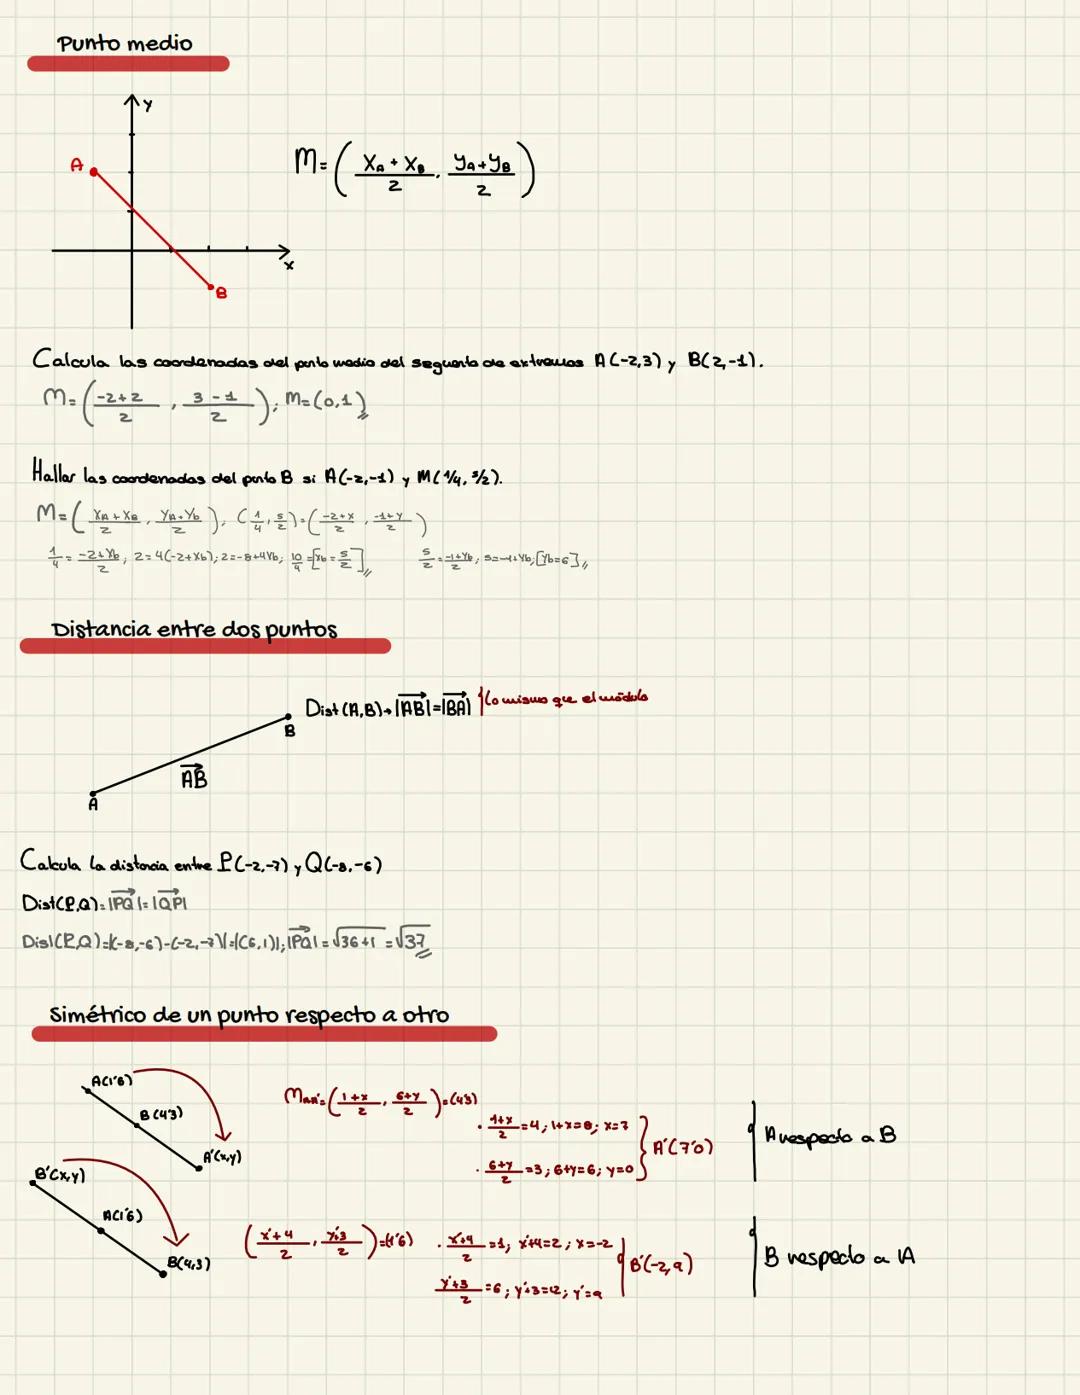 Punto medio
y
A
M = ( (x_A + x_B)/2 , (y_A + y_B)/2 )
x
B
Calcula las coordenadas del punto medio del segmento de extremos A(-2,3) y B(2,-1).
M = ( (-2+2)/2 , (3-1)/2 ); M = (0,1)
Hallar las coordenadas del punto B si A(-2,-1) y M(1/4, 5/2).
M = ( (x_A + x_B)/2 , (y_A + y_b)/2 ), (1/4, 5/2) = ( (-2+x)/2 , (-1+y)/2 )
1/4 = (-2+x_b)/2; 2=4(-2+x_b); 2=-8+4x_b; 10/4 = [x_b = 5/2] 5/2 = (-1+y_b)/2; 5=-1+y_b; [y_b=6]
Distancia entre dos puntos
Dist(A,B)→|AB|=|BA| Lo mismo que el módulo
B
AB
A
Calcula la distancia entre P(-2,-7) y Q(-8,-6)
Dist(P,Q)=|PQ|=|QP|
Dist(P,Q)=|(-8,-6)-(-2,-7)|=|(6,1)|; |PQ| = √36+1 = √37
Simétrico de un punto respecto a otro
A(1'6)
B(4'3)
A'(x,y)
M_AA' = ( (1+x)/2 , (6+y)/2 ) = (4'3)
· (1+x)/2 = 4; 1+x=8; x=7
· (6+y)/2 = 3; 6+y=6; y=0
A'(7'0)
A respecto a B
B'(x,y)
A(1'6)
B(4,3)
( (x'+4)/2 , (y'+3)/2 ) = (1'6)
· (x'+4)/2 = 1; x'+4=2; x=-2
(y'+3)/2 = 6; y'+3=12; y'=9
B'(-2,9)
B respecto a A